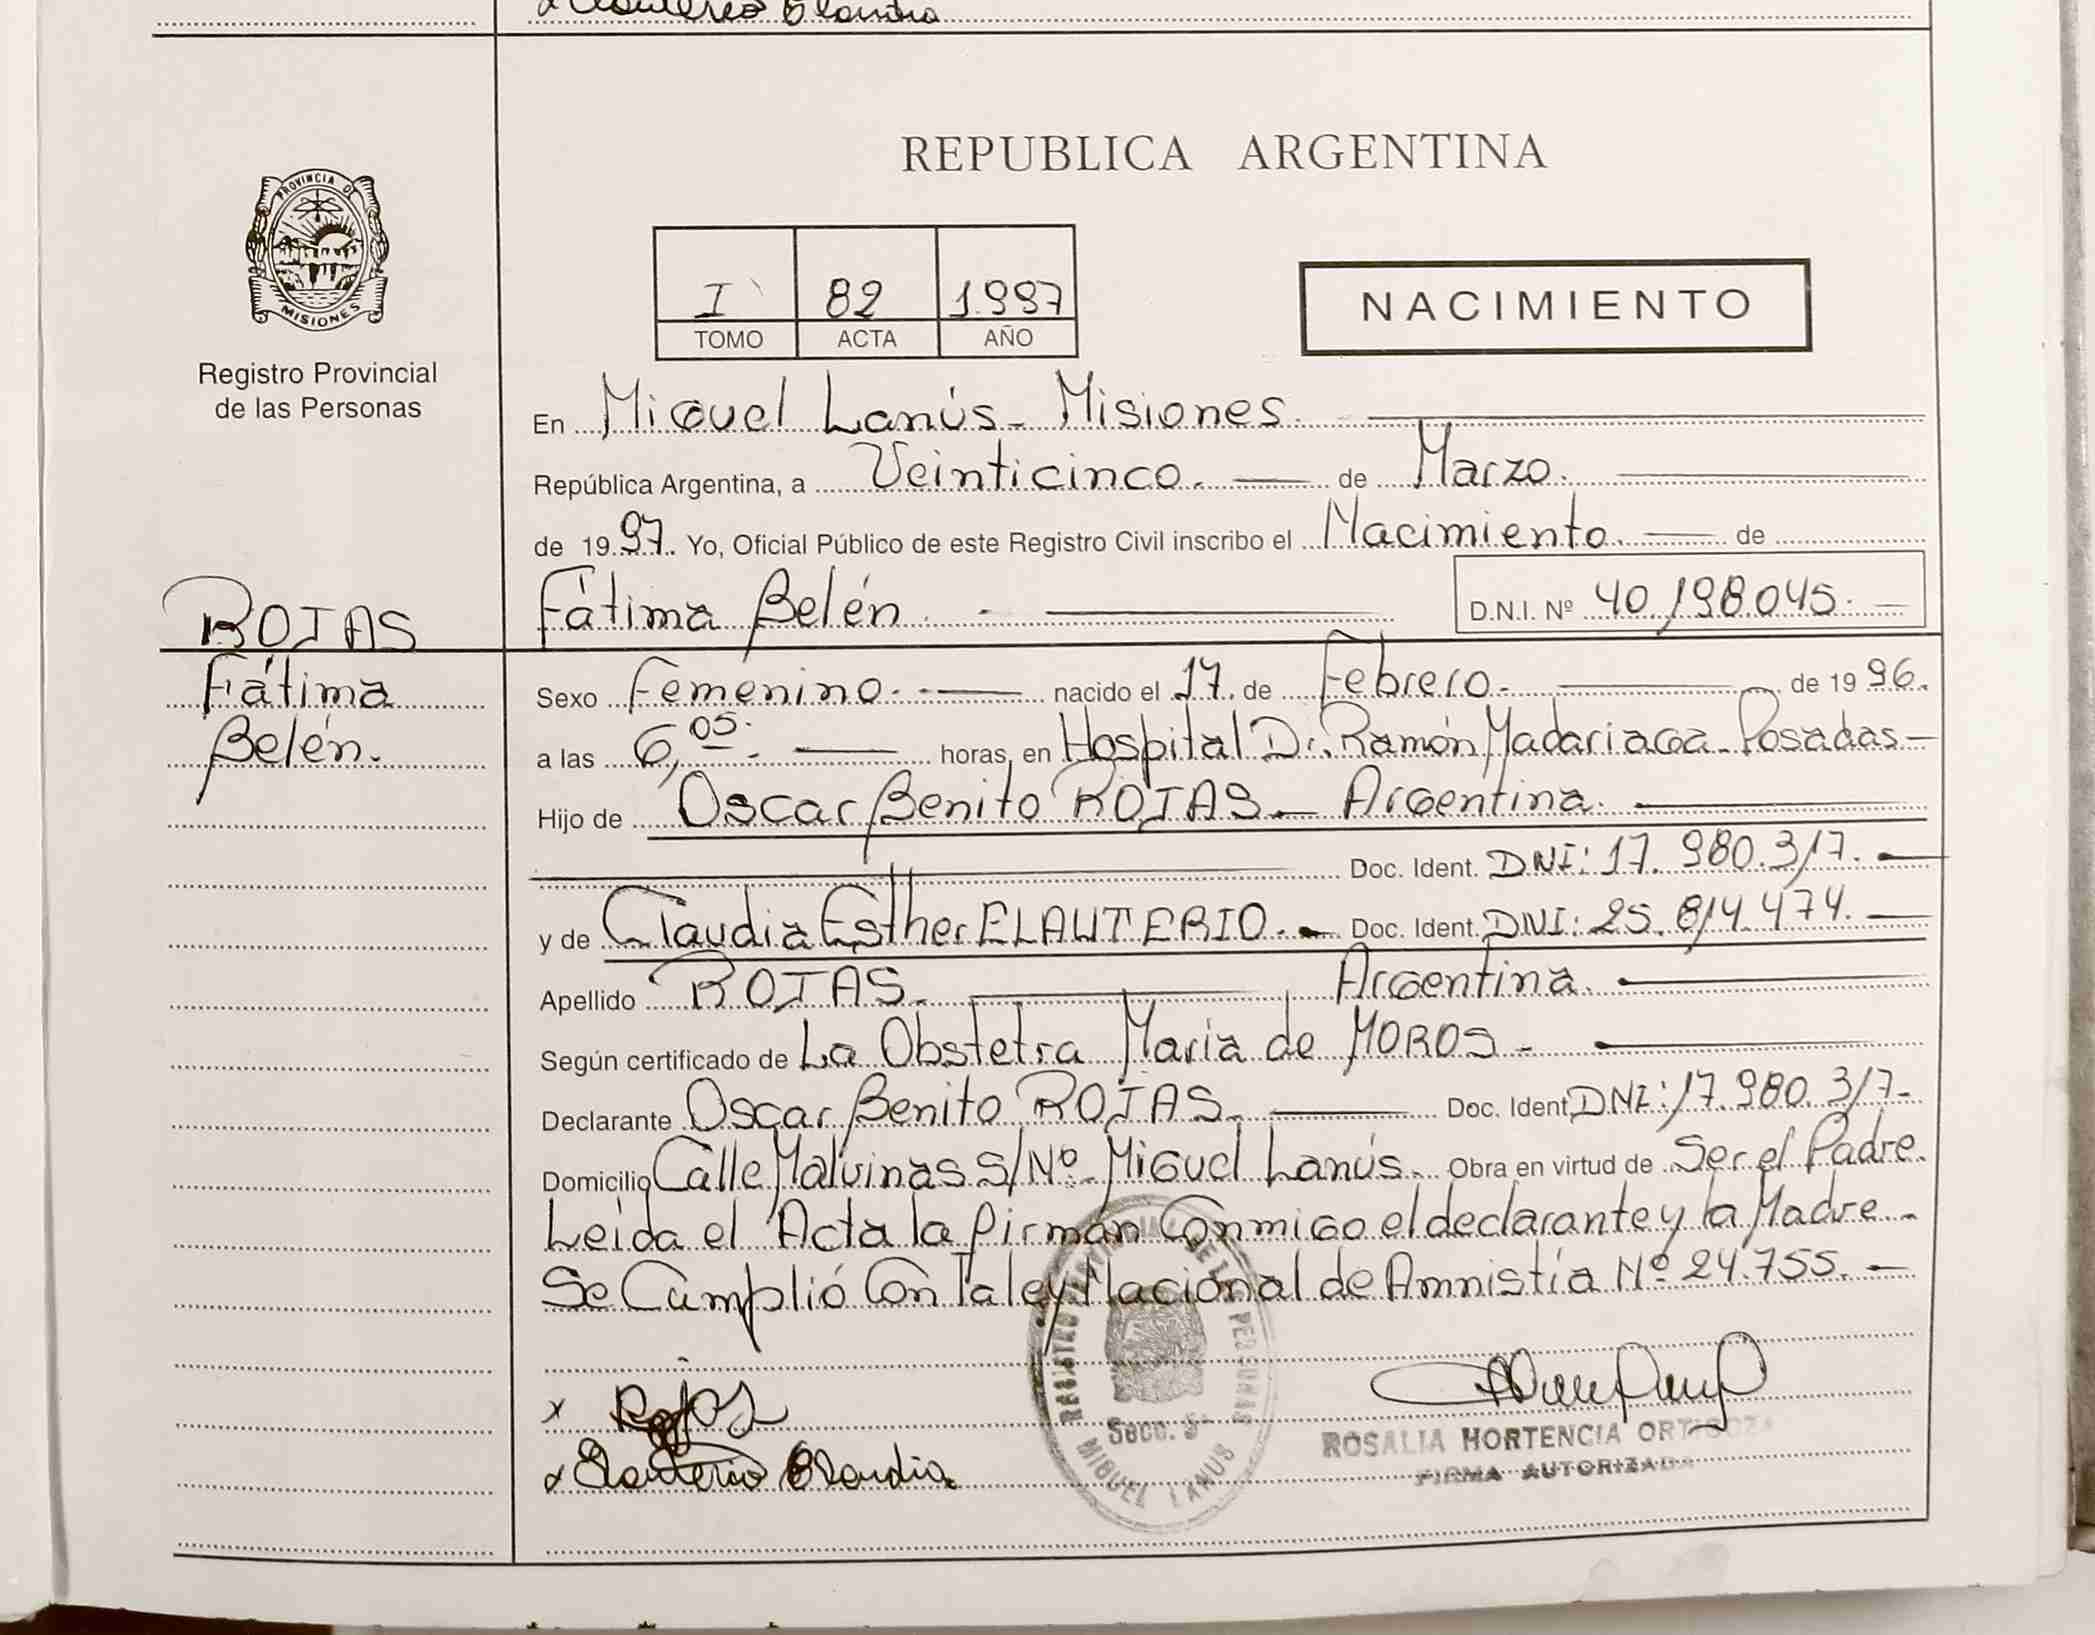 Elauterio Claudia
PROVINCIA DE
MISIONES
Registro Provincial
de las Personas
REPUBLICA ARGENTINA
I 82 1.997
TOMO ACTA AÑO
NACIMIENTO
En Miguel Lanús - Misiones.
República Argentina, a Veinticinco. de Marzo.
de 1997. Yo, Oficial Público de este Registro Civil inscribo el Nacimiento. de
Fátima Belén. D.N.I. Nº 40.198.045.
ROJAS
Fátima
Belén.
Sexo Femenino. nacido el 17. de Febrero. de 1996.
a las 6,05. horas, en Hospital Dr. Ramón Madariaga - Posadas -
Hijo de Oscar Benito ROJAS - Argentina.
Doc. Ident. DNI: 17.980.317.
y de Claudia Esther ELAUTERIO. Doc. Ident. DNI: 25.814.474.
Apellido ROJAS. Argentina.
Según certificado de La Obstetra Maria de MOROS -
Declarante Oscar Benito ROJAS. Doc. Ident DNI: 17.980.317-
Domicilio Calle Malvinas S/Nº - Miguel Lanús. Obra en virtud de Ser el Padre.
Leida el Acta la firmán Conmigo el declarante y la Madre -
Se Cumplió Con la ley Nacional de Amnistía Nº 24.755. -
x Rojas
x Elauterio Claudia
REGISTRO PROVINCIAL DE LAS PERSONAS
Secc. 5
MIGUEL LANUS
ROSALIA HORTENCIA ORTIGOZA
FIRMA AUTORIZADA